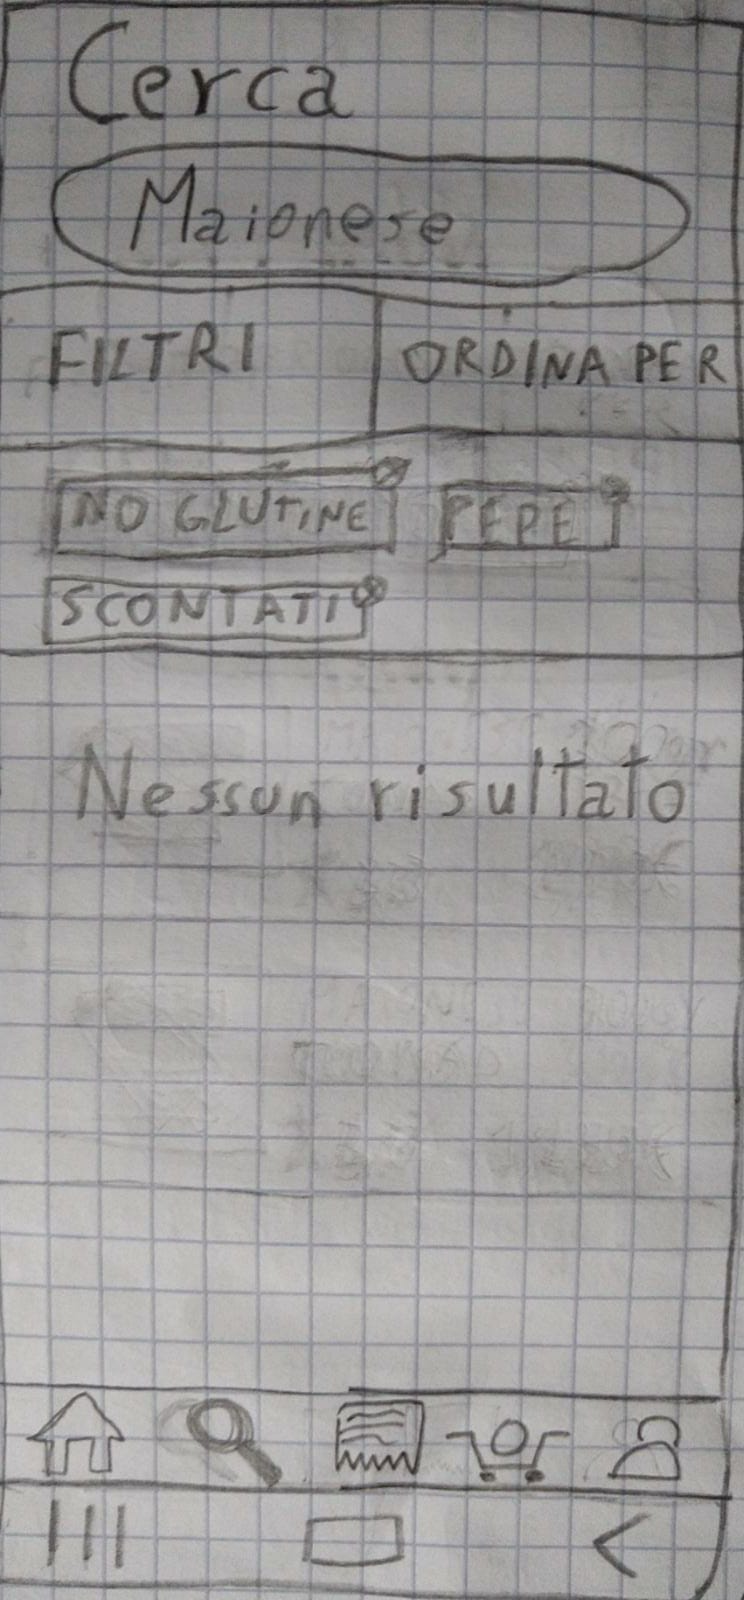 Cerca
Maionese
FILTRI ORDINA PER
NO GLUTINE PEPE
SCONTATI
Nessun risultato